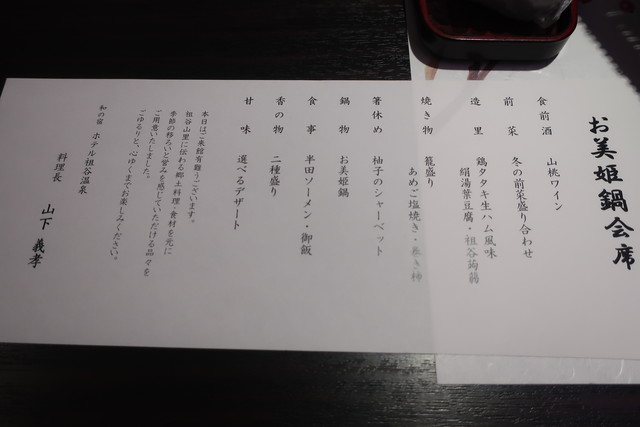 お美姫鍋会席
食前酒 山桃ワイン
前菜 冬の前菜盛り合わせ
造里 鶏タタキ生ハム風味
絹湯葉豆腐・祖谷蒟蒻
焼き物 籠盛り
あめご塩焼き・巻き柿
箸休め 柚子のシャーベット
鍋物 お美姫鍋
食事 半田ソーメン・御飯
香の物 二種盛り
甘味 選べるデザート
本日はご来館有難うございます。
祖谷山里に伝わる郷土料理、食材を元に
季節の移ろいと営みを感じていただける品々を
ご用意いたしました。
ごゆるりと、心ゆくまでお楽しみください。
和の宿 ホテル祖谷温泉
料理長 山下 義孝